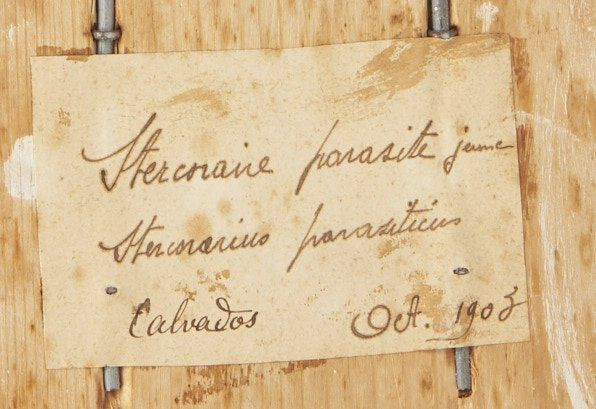 Stercoraire parasite jeune
Stercorarius parasiticus
Calvados Oct. 1903